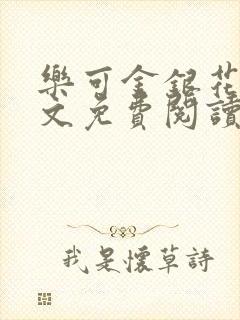 樂可金銀花
文免費閱讀
我是懷草詩